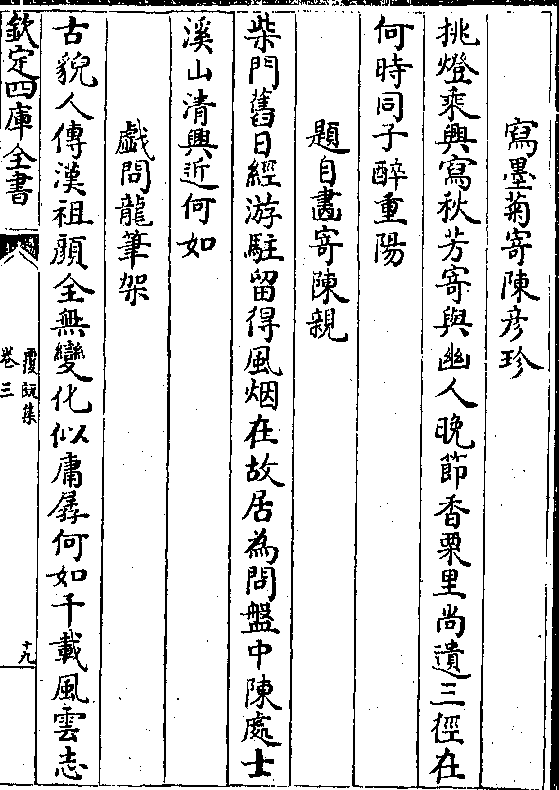 寫墨菊寄陳彦珍
挑燈乘興寫秋芳寄與幽人晚節香栗里尚遺三徑在
何時同子醉重陽
題自畵寄陳親
柴門舊日經游駐留得風烟在故居為問盤中陳處士
溪山清興近何如
戱問龍筆架
古貌人傳漢祖顔全無變化似庸孱何如千載風雲志
欽定四庫全書
覆瓿集
卷三
十九